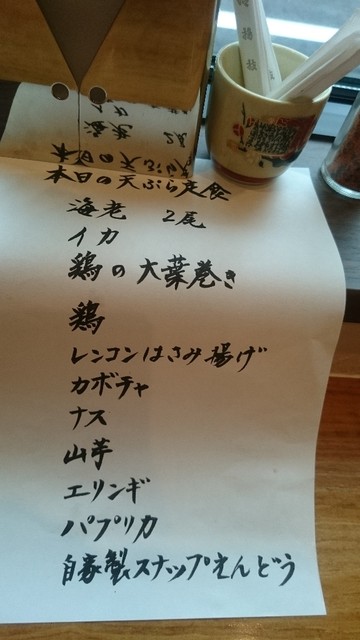 本日の天ぷら定食
海老 2尾
イカ
鶏の大葉巻き
鶏
レンコンはさみ揚げ
カボチャ
ナス
山芋
エリンギ
パプリカ
自家製スナップえんどう